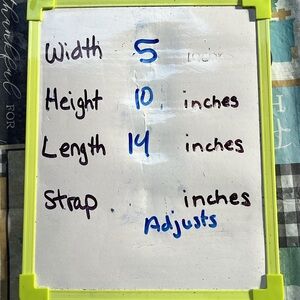 thankful FOR
Width 5
Height 10 inches
Length 14 inches
Strap inches
Adjusts